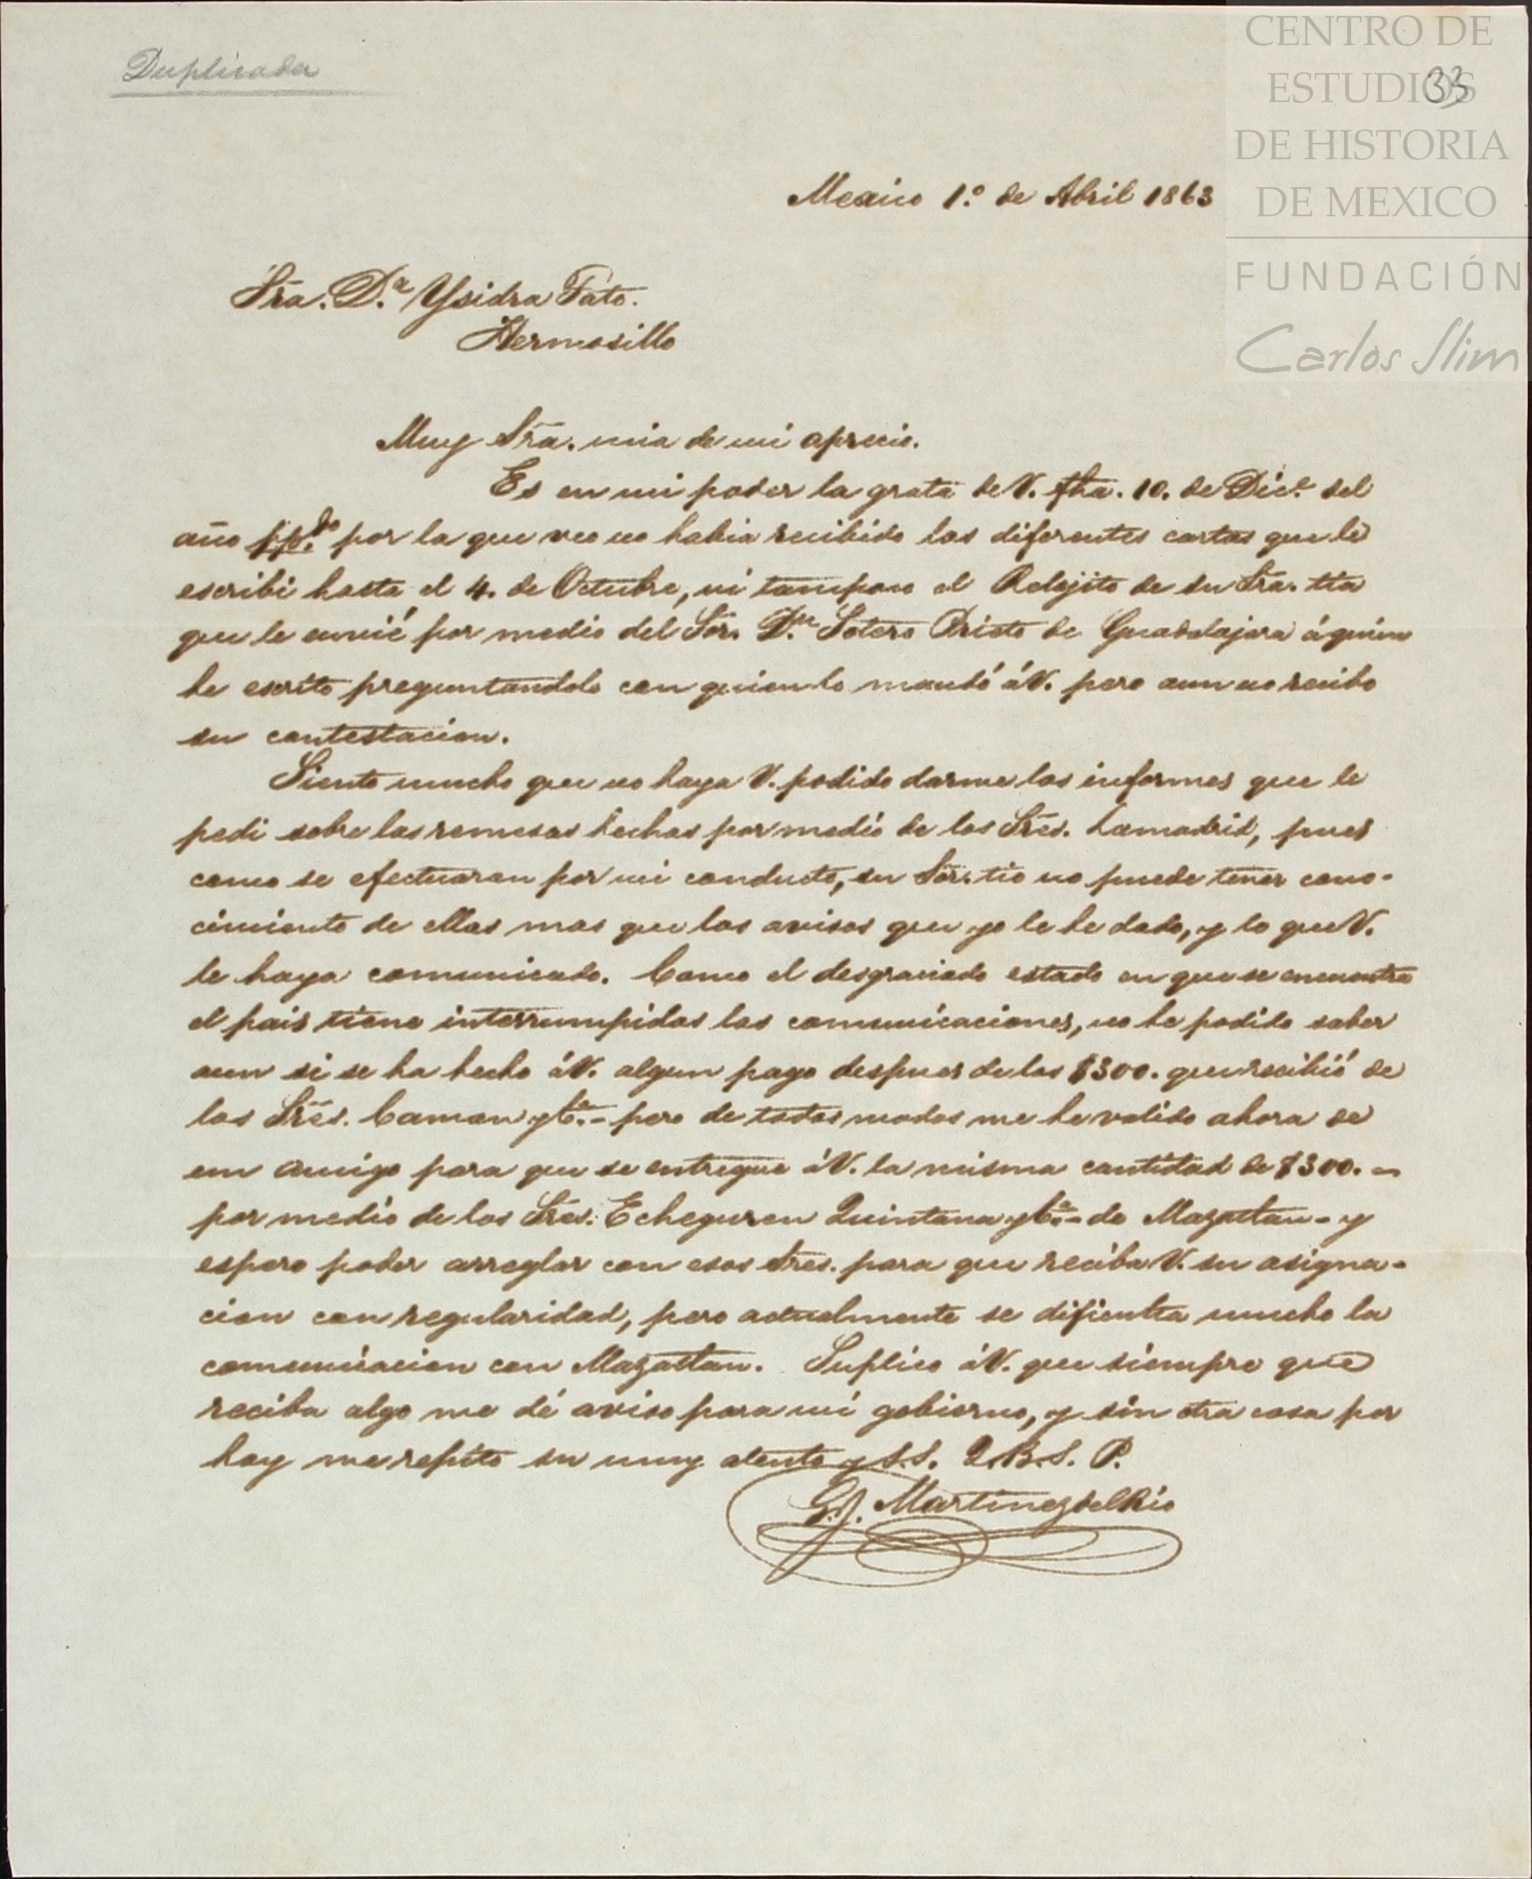 Duplicada
33
CENTRO DE
ESTUDIOS
DE HISTORIA
DE MEXICO
FUNDACIÓN
Carlos Slim
Mexico 1.º de Abril 1863
Sra. D.ª Ysidra Tato.
Hermosillo
Muy Sra. mia de mi aprecio.
Es en mi poder la grata de V. fha. 10. de Dic.e del
año pp.do por la que veo no habia recibido las diferentes cartas que le
escribi hasta el 4. de Octubre, ni tampoco el Relojito de su Sra. tia
que le envié por medio del Sor. D.n Sotero Prieto de Guadalajara á quien
he escrito preguntandole con quien lo mandó á V. pero aun no recibo
su contestacion.
Siento mucho que no haya V. podido darme los informes que le
pedi sobre las remesas hechas por medio de los Sres. Lamadrid, pues
como se efectuaron por mi conducto, su Sor. tio no puede tener cono-
cimiento de ellas mas que los avisos que yo le he dado, y lo que V.
le haya comunicado. Como el desgraciado estado en que se encuentra
el pais tiene interrumpidas las comunicaciones, no he podido saber
aun si se ha hecho á V. algun pago despues de los $300. que recibió de
los Sres. Caman y C.ª - pero de todos modos me he valido ahora de
un amigo para que se entregue á V. la misma cantidad de $300. -
por medio de los Sres. Echeguren Quintana y C.ª - de Mazatlan - y
espero poder arreglar con esos Sres. para que reciba V. su asigna-
cion con regularidad, pero actualmente se dificulta mucho la
comunicacion con Mazatlan. Suplico á V. que siempre que
reciba algo me dé aviso para mi gobierno, y sin otra cosa por
hoy me repito su muy atento y S.S. Q.B.S.P.
G. J. Martinez del Rio